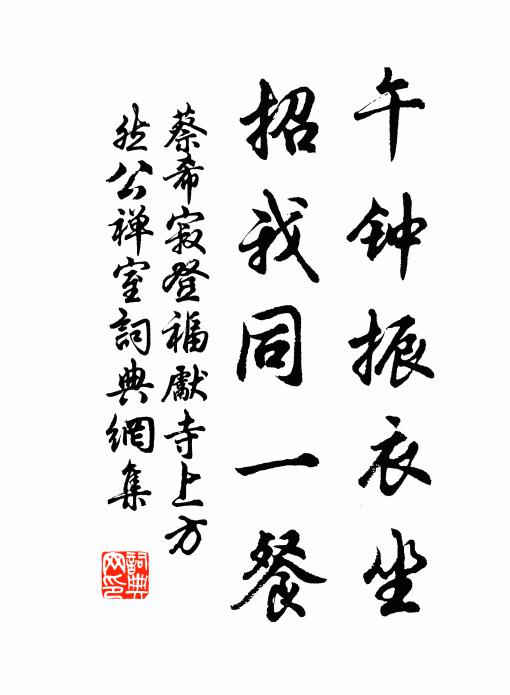 午钟振衣坐
招我同一餐
蔡希寂登福獻寺上方
然公禅室詞典網集
詞典
网印